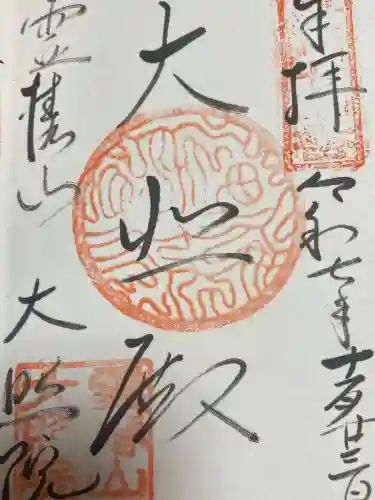 奉拝
令和七年十一月廿三日
大悲殿
靈椿山
大照院